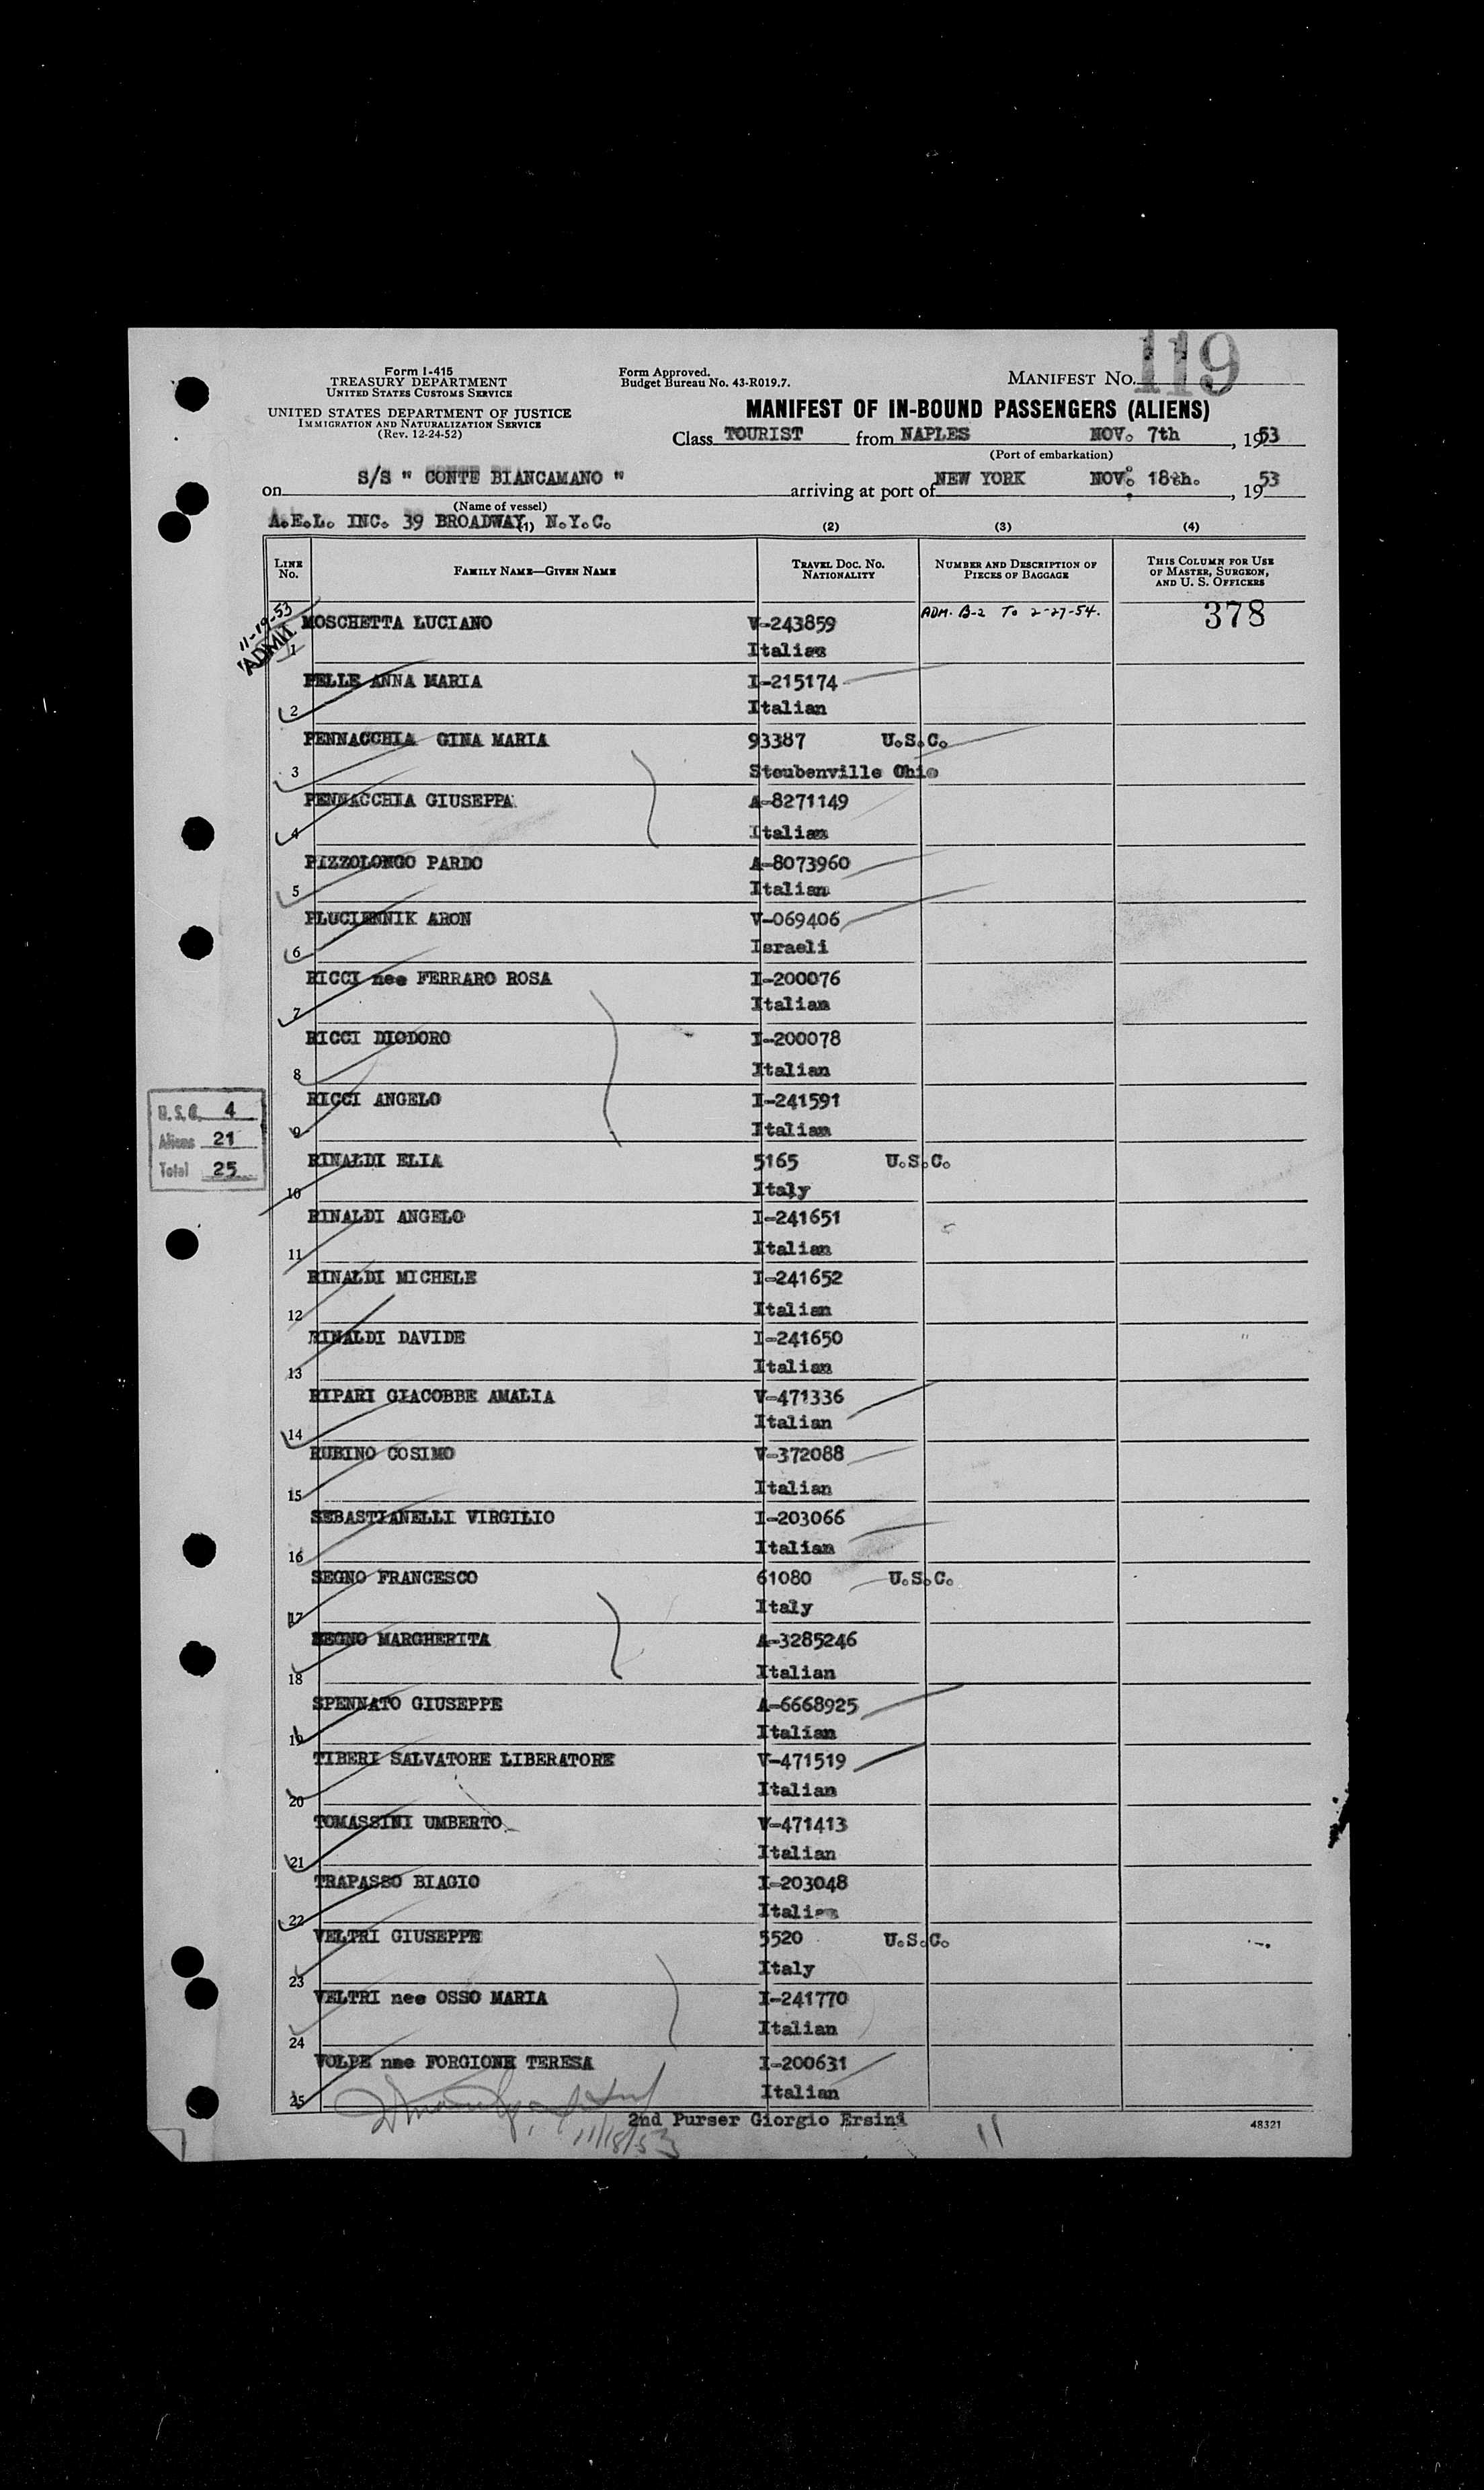 119
Form I-415
TREASURY DEPARTMENT
UNITED STATES CUSTOMS SERVICE
UNITED STATES DEPARTMENT OF JUSTICE
IMMIGRATION AND NATURALIZATION SERVICE
(Rev. 12-24-52)
Form Approved.
Budget Bureau No. 43-R019.7.
MANIFEST No.
MANIFEST OF IN-BOUND PASSENGERS (ALIENS)
Class TOURIST from NAPLES NOV. 7th, 1953
(Port of embarkation)
on S/S " CONTE BIANCAMANO " arriving at port of NEW YORK NOV. 18th., 1953
(Name of vessel)
A.E.L. INC. 39 BROADWAY, N.Y.C.
(1) (2) (3) (4)
LINE No. FAMILY NAME—GIVEN NAME TRAVEL DOC. No. NATIONALITY NUMBER AND DESCRIPTION OF PIECES OF BAGGAGE THIS COLUMN FOR USE OF MASTER, SURGEON, AND U. S. OFFICERS
11-19-53
ADMIT.
MOSCHETTA LUCIANO V-243859 ADM. B-2 To 2-27-54. 378
1 Italian
PELLE ANNA MARIA I-215174
2 Italian
PENNACCHIA GINA MARIA 93387 U.S.C.
3 Steubenville Ohio
PENNACCHIA GIUSEPPA A-8271149
4 Italian
PIZZOLONGO PARDO A-8073960
5 Italian
PLUCIENNIK ARON V-069406
6 Israeli
RICCI nee FERRARO ROSA I-200076
7 Italian
RICCI DIODORO I-200078
8 Italian
RICCI ANGELO I-241591
9 Italian
RINALDI ELIA 5165 U.S.C.
10 Italy
RINALDI ANGELO I-241651
11 Italian
RINALDI MICHELE I-241652
12 Italian
RINALDI DAVIDE I-241650
13 Italian
RIPARI GIACOBBE AMALIA V-471336
14 Italian
RUBINO COSIMO V-372088
15 Italian
SEBASTIANELLI VIRGILIO I-203066
16 Italian
SEGNO FRANCESCO 61080 U.S.C.
17 Italy
SEGNO MARGHERITA A-3285246
18 Italian
SPENNATO GIUSEPPE A-6668925
19 Italian
TIBERI SALVATORE LIBERATORE V-471519
20 Italian
TOMASSINI UMBERTO V-471413
21 Italian
TRAPASSO BIAGIO I-203048
22 Italian
VELTRI GIUSEPPE 5520 U.S.C.
23 Italy
VELTRI nee OSSO MARIA I-241770
24 Italian
VOLPE nee FORGIONE TERESA I-200631
25 Italian
U.S.C. 4
Aliens 21
Total 25
2nd Purser Giorgio Ersini
11/18/53
11
48321